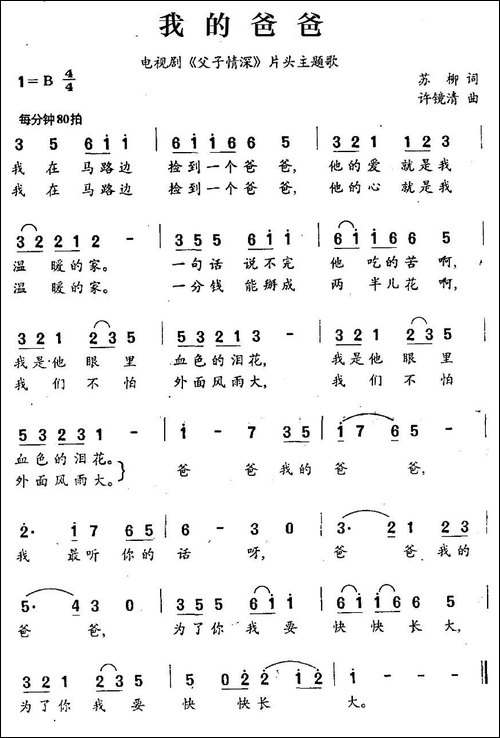 我的爸爸
电视剧《父子情深》片头主题歌
1=B 4/4
苏柳 词
许镜清 曲
每分钟80拍
3 5 6 i i | i i i 6 6 5 | 3 2 2 1 1 2 3
我 在 马路边 捡到一个爸爸, 他的爱 就是我
我 在 马路边 捡到一个爸爸, 他的心 就是我
3 2 2 1 2 - | 3 5 5 6 i i | 6 i i 6 6 5
温暖的家。 一句话 说不完 他 吃的苦啊,
温暖的家。 一分钱 能掰成 两 半儿花啊,
3 2 1 2 3 5 | 5 3 5 2 1 3 - | 3 2 1 2 3 5
我是他 眼里 血色的泪花, 我是他 眼里
我们 不怕 外面风雨大, 我们 不怕
5 3 2 3 1 - | i - 7 3 5 | i 7 6 5 -
血色的泪花。 爸 爸 我的 爸 爸,
外面风雨大。
2· i 7 6 5 | 6 - 3 0 | 3· 2 1 2 3
我 最听你的 话 呀, 爸 爸 我的
5· 4 3 0 | 3 5 5 6 i i | 6 i i 6 6 5
爸 爸, 为了你 我要 快 快 长大,
3 2 1 2 3 5 | 5 0 2 2 i 2 | i - - -
为了你 我要 快 快长 大。